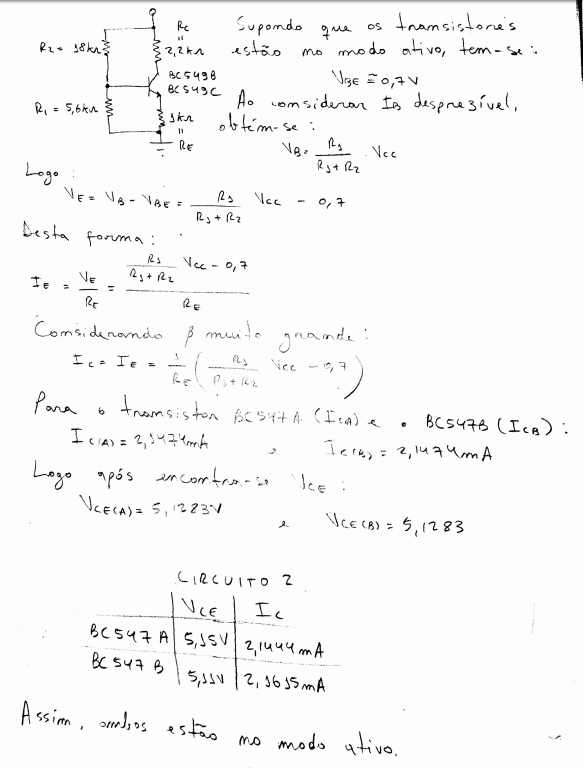 R2 = 18kΩ
Rc
"
2,2kΩ
BC549B
BC549C
R1 = 5,6kΩ
1kΩ
"
RE
Supondo que os transistores
estão no modo ativo, tem-se:
VBE ≅ 0,7V
Ao considerar IB desprezível,
obtém-se:
VB = R1/(R1+R2) Vcc
Logo:
VE = VB - VBE = R1/(R1+R2) Vcc - 0,7
Desta forma:
IE = VE/RE = (R1/(R1+R2) Vcc - 0,7)/RE
Considerando β muito grande:
Ic = IE = 1/RE (R1/(R1+R2) Vcc - 0,7)
Para o transistor BC547A (IcA) e o BC547B (IcB):
Ic(A) = 2,1474mA e Ic(B) = 2,1474mA
Logo após encontra-se VCE:
VCE(A) = 5,1283V e VCE(B) = 5,1283
CIRCUITO 2
VCE Ic
BC547A 5,15V 2,1444mA
BC547B 5,11V 2,1615mA
Assim, ambos estão no modo ativo.